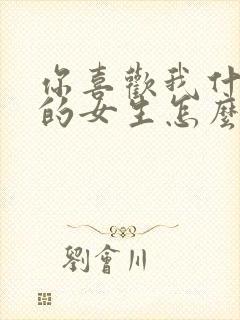 你喜歡我什
的女生怎麼
劉會川